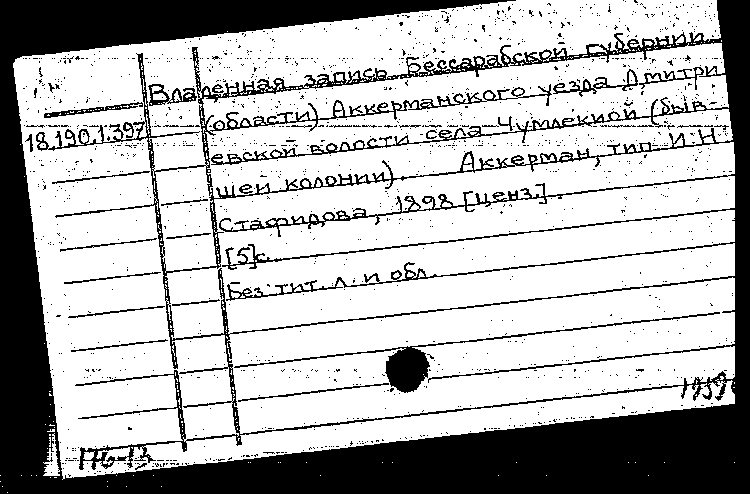 Владенная запись Бессарабской губернии
18.190.1.397 (области) Аккерманского уезда Дмитри
евской волости села Чумлекиой (быв-
шей колонии). Аккерман, тип. И.Н.
Стафидова, 1898 [ценз.].
[5]с.
Без тит. л. и обл.
176-13